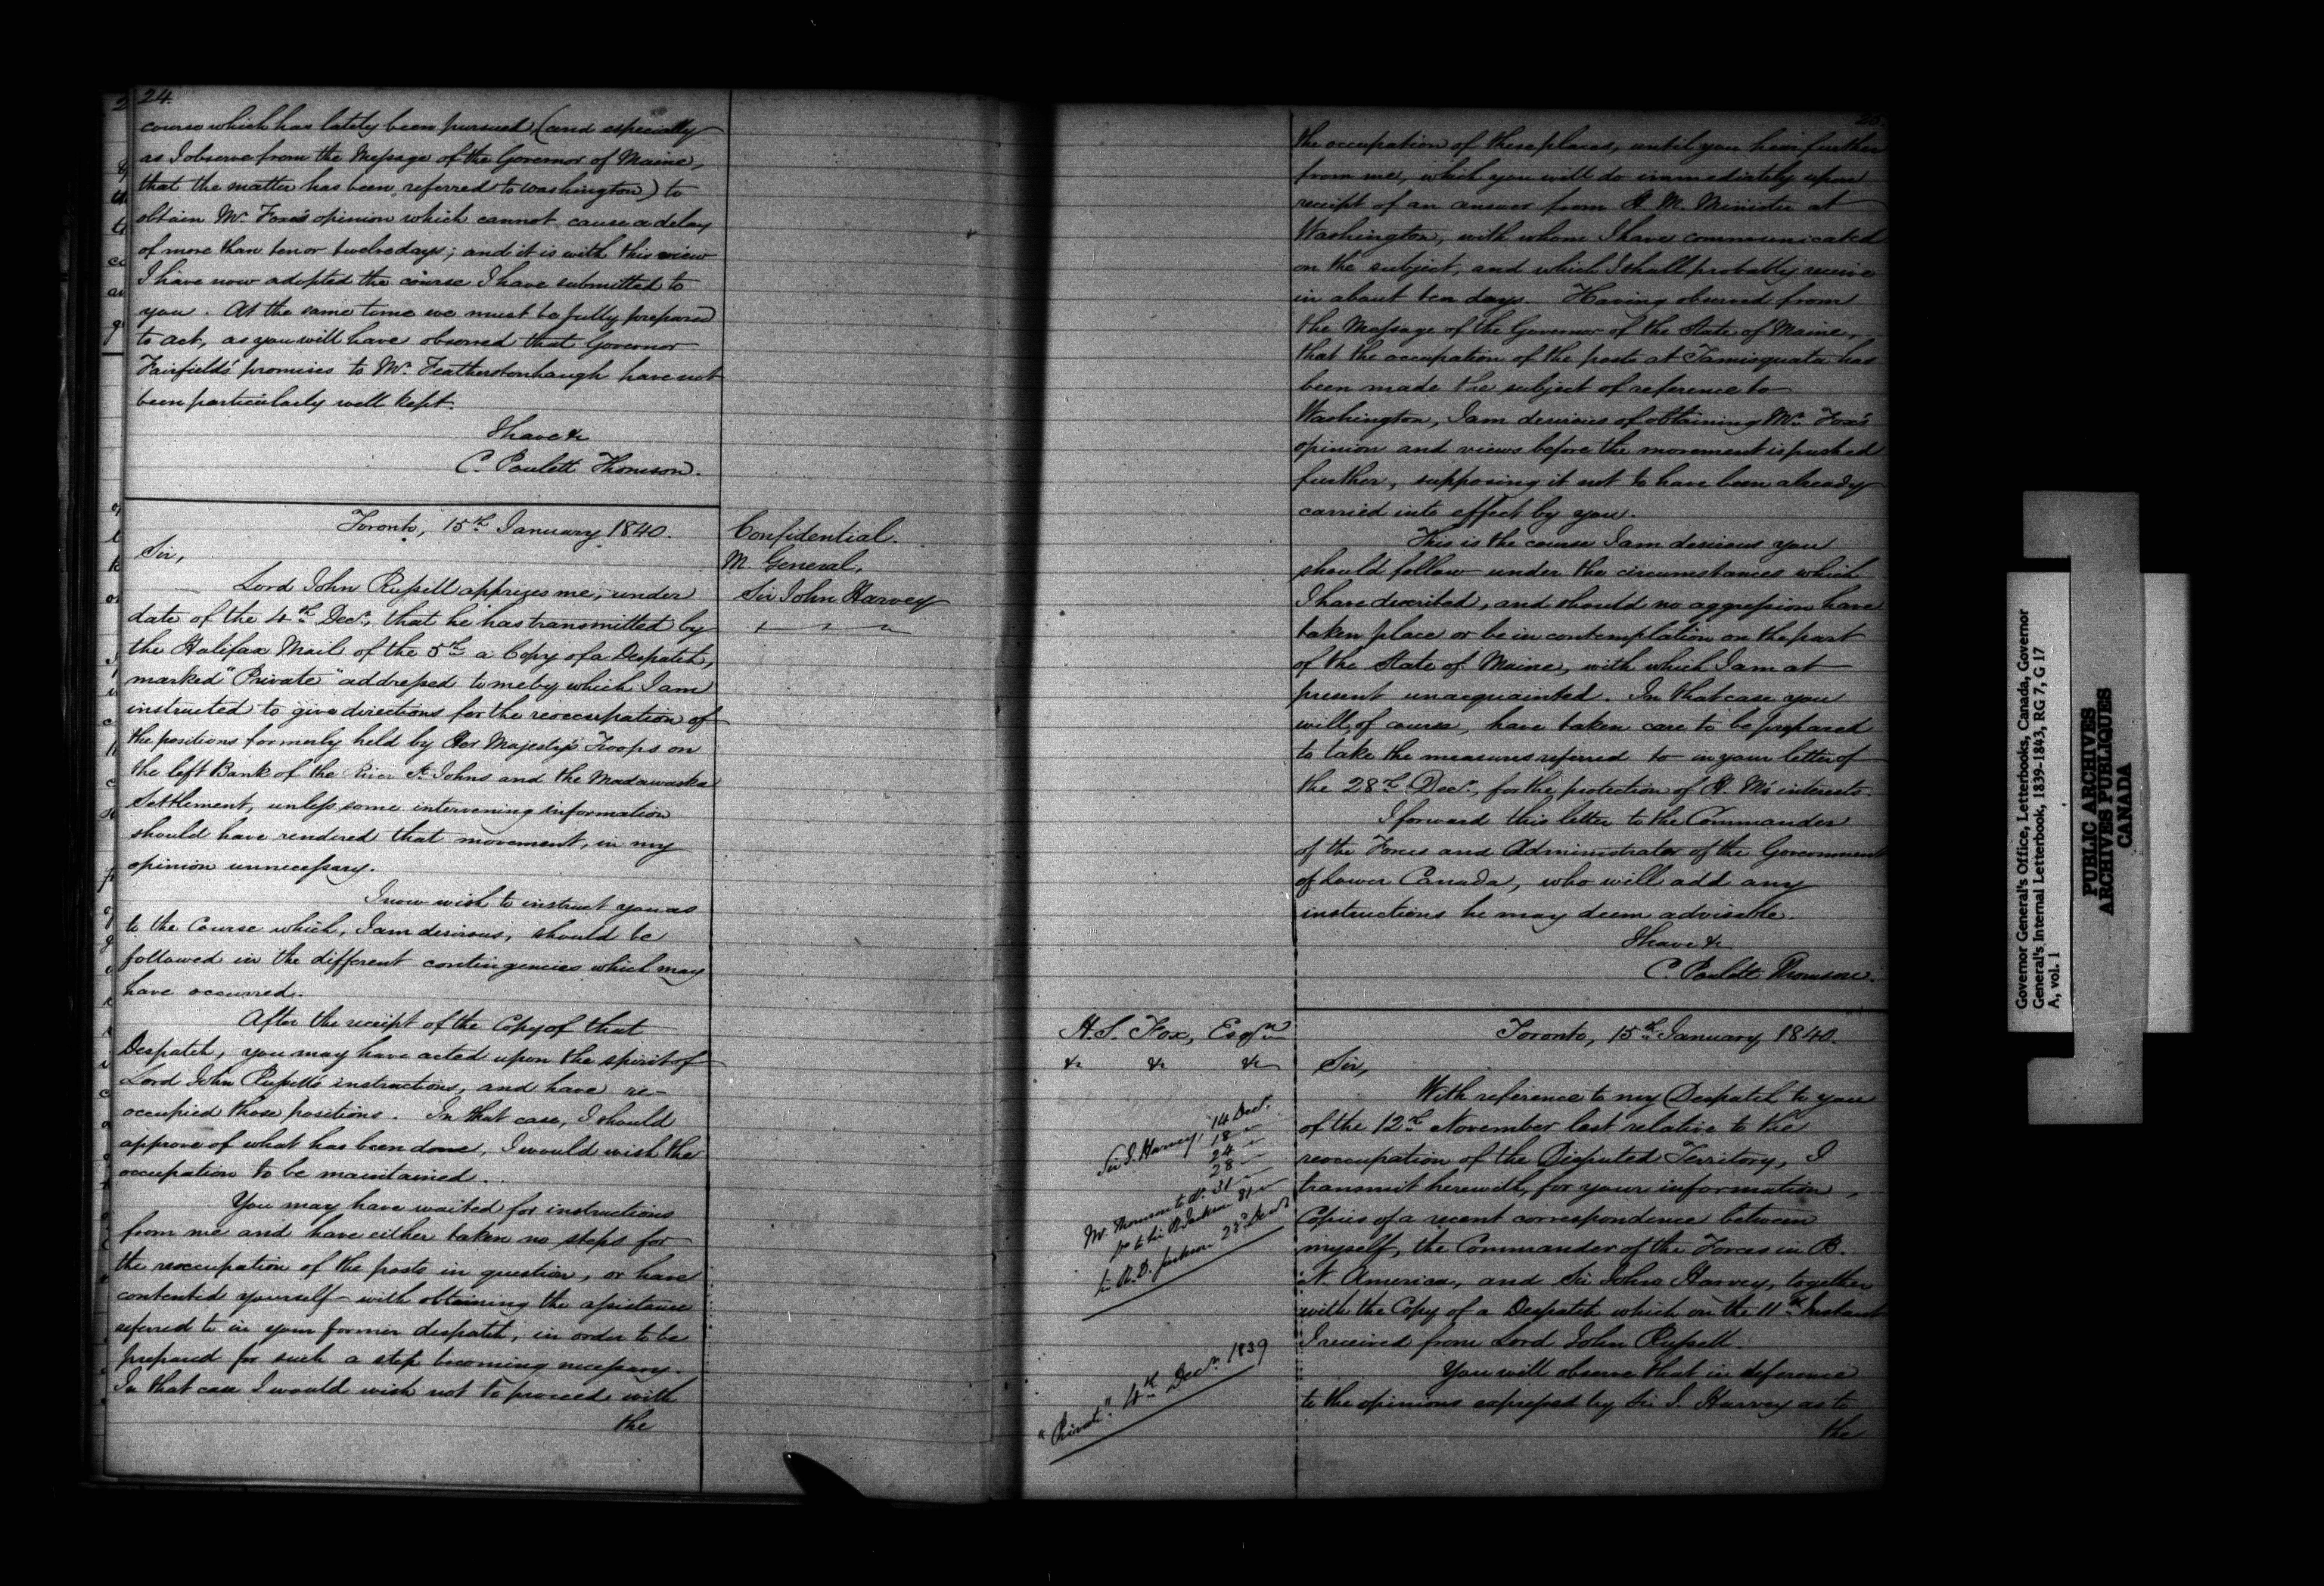 24.
course which has lately been pursued (and especially
as I observe from the Message of the Governor of Maine,
that the matter has been referred to Washington) to
obtain Mr. Fox's opinion which cannot cause a delay
of more than ten or twelve days; and it is with this view
I have now adopted the course I have submitted to
you. At the same time we must be fully prepared
to act, as you will have observed that Governor
Fairfield's promises to Mr. Featherstonhaugh have not
been particularly well kept.
I have &c
C. Poulett Thomson.
Toronto, 15th January 1840.
Confidential.
M. General,
Sir John Harvey
Sir,
Lord John Russell apprizes me, under
date of the 4th Decr, that he has transmitted by
the Halifax Mail of the 5th a Copy of a Despatch,
marked "Private" addressed to me by which I am
instructed to give directions for the reoccupation of
the positions formerly held by Her Majesty's Troops on
the left Bank of the River St. Johns and the Madawaska
Settlement, unless some intervening information
should have rendered that movement, in my
opinion unnecessary.
I now wish to instruct you as
to the Course which, I am desirous, should be
followed in the different contingencies which may
have occurred.
After the receipt of the Copy of that
Despatch, you may have acted upon the spirit of
Lord John Russell's instructions, and have re-
occupied those positions. In that case, I should
approve of what has been done, I would wish the
occupation to be maintained.
You may have waited for instructions
from me and have either taken no steps for
the reoccupation of the posts in question, or have
contented yourself with obtaining the assistance
referred to in your former despatch, in order to be
prepared for such a step becoming necessary.
In that case I would wish not to proceed with
the
25
the occupation of these places, until you hear further
from me, which you will do immediately upon
receipt of an answer from H. M. Minister at
Washington, with whom I have communicated
on the subject, and which I shall probably receive
in about ten days. Having observed from
the Message of the Governor of the State of Maine,
that the occupation of the posts at Tamisquata has
been made the subject of reference to
Washington, I am desirous of obtaining Mr. Fox's
opinion and views before the movement is pushed
further, supposing it not to have been already
carried into effect by you.
This is the course I am desirous you
should follow under the circumstances which
I have described, and should no aggression have
taken place or be in contemplation on the part
of the State of Maine, with which I am at
present unacquainted. In that case you
will, of course, have taken care to be prepared
to take the measures referred to in your letter of
the 28th Decr, for the protection of H. M's interests.
I forward this letter to the Commander
of the Forces and Administrator of the Government
of Lower Canada, who will add any
instructions he may deem advisable.
I have &c
C. Poulett Thomson.
H. S. Fox, Esqre
&c &c &c
Toronto, 15th January, 1840.
Sir,
With reference to my Despatch to you
of the 12th November last relative to the
reoccupation of the Disputed Territory, I
transmit herewith, for your information,
Copies of a recent correspondence between
myself, the Commander of the Forces in B.
N. America, and Sir John Harvey, together
with the Copy of a Despatch which on the 11th Instant
I received from Lord John Russell.
You will observe that in deference
to the opinions expressed by Sir J. Harvey as to
the
Sir J. Harvey, 14 Decr.
18 "
24 "
28 "
Mr. Thomson to do. 31 "
Do to Sir R. Jackson 31 "
Sir R. D. Jackson 23d Decr
"Private". 4th Decr. 1839
Governor General's Office, Letterbooks, Canada, Governor
General's Internal Letterbook, 1839-1843, RG 7, G 17
A, vol. 1
PUBLIC ARCHIVES
ARCHIVES PUBLIQUES
CANADA